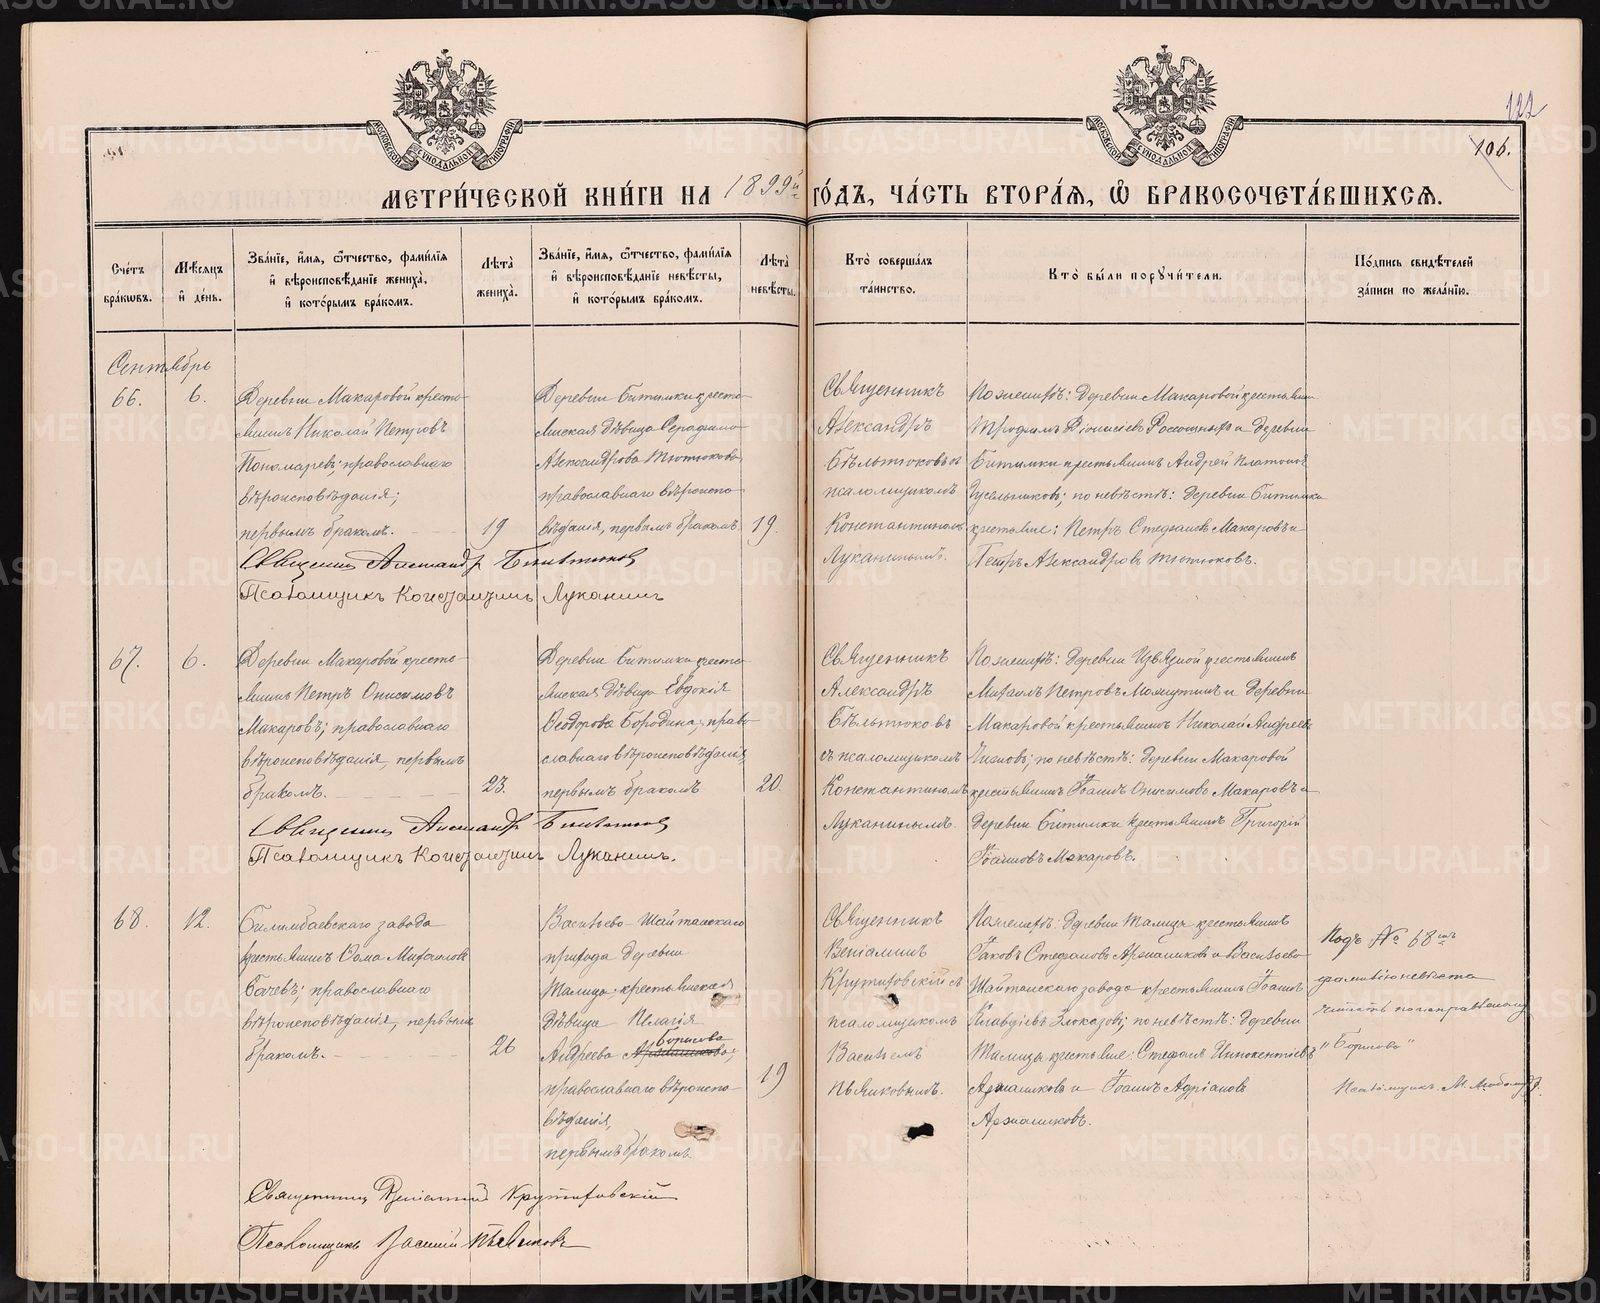 122
106.
МОСКОВСКОЙ СѴНОДАЛЬНОЙ ТИПОГРАФИИ
МОСКОВСКОЙ СѴНОДАЛЬНОЙ ТИПОГРАФИИ
МЕТРИ́ЧЕСКОЙ КНИ́ГИ НА 1899й ГО́ДЪ, ЧА́СТЬ ВТОРА́Я, Ѡ БРАКОСОЧЕТА́ВШИХСЯ.
Сче́тъ бра́кѡвъ.
Мѣ́сяцъ и҆ де́нь.
Зва́нїе, и҆́мя, ѻ҆́тчество, фами́лїя и҆ вѣроисповѣ́данїе жениха̀, и҆ кото́рымъ бра́комъ.
Лѣта̀ жениха̀.
Зва́нїе, и҆́мя, ѻ҆́тчество, фами́лїя и҆ вѣроисповѣ́данїе невѣ́сты, и҆ кото́рымъ бра́комъ.
Лѣта̀ невѣ́сты.
Кто̀ соверша́лъ та́инство.
Кто̀ бы́ли порꙋчи́тели.
По́дпись свидѣ́телей за́писи по жела́нїю.
Сентябрь
66.
6.
Деревни Макаровой кресть-
янинъ Николай Петровъ
Пономаревъ; православнаго
вѣроисповѣданія;
первымъ бракомъ.
19
Деревни Битимки кресть-
янская дѣвица Серафима
Александрова Тютюкова
православнаго вѣроиспо-
вѣданія, первымъ бракомъ
19.
Священникъ
Александръ
Бѣльтюковъ съ
псаломщикомъ
Константиномъ
Луканинымъ.
По женихѣ: деревни Макаровой крестьянинъ
Трофимъ Діонисіевъ и деревни
Битимки крестьянинъ Андрей Платоновъ
Гусельниковъ; по невѣстѣ: деревни Битимки
крестьяне: Петръ Стефановъ Макаровъ и
Петръ Александровъ Тютюковъ.
Священникъ Александръ Бѣльтюковъ
Псаломщикъ Константинъ Луканинъ
67.
6.
Деревни Макаровой кресть-
янинъ Петръ Онисимовъ
Макаровъ; православнаго
вѣроисповѣданія, первымъ
бракомъ.
23.
Деревни Битимки кресть-
янская дѣвица Евдокія
Ѳеодорова Бородина; право-
славнаго вѣроисповѣданія,
первымъ бракомъ
20.
Священникъ
Александръ
Бѣльтюковъ
съ псаломщикомъ
Константиномъ
Луканинымъ.
По женихѣ: деревни Извязной крестьянинъ
Михаилъ Петровъ и деревни
Макаровой крестьянинъ Николай Андреевъ
по невѣстѣ: деревни Макаровой
крестьянинъ Іоаннъ Онисимовъ Макаровъ и
деревни Битимки крестьянинъ Григорій
Іоанновъ Макаровъ.
Священникъ Александръ Бѣльтюковъ
Псаломщикъ Константинъ Луканинъ.
68.
12.
Билимбаевскаго завода
крестьянинъ Ѳома Михаиловъ
Бачевъ; православнаго
вѣроисповѣданія, первымъ
бракомъ.
26
Васильево-Шайтанскаго
прихода деревни
Талицы крестьянская
дѣвица Пелагія
Борисова
Андреева
православнаго вѣроиспо-
вѣданія,
первымъ бракомъ.
19
Священникъ
Веніаминъ
Крутиховскій съ
псаломщикомъ
Василіемъ
Пьянковымъ.
По женихѣ: деревни Талицы крестьянинъ
Іаковъ Стефановъ Аржанниковъ и Васильево-
Шайтанскаго завода крестьянинъ Іоаннъ
Клавдіевъ Злоказовъ; по невѣстѣ: деревни
Талицы крестьяне: Стефанъ Иннокентіевъ
Аржанниковъ и Іоаннъ Адріановъ
Аржанниковъ.
Подъ № 68мъ
фамилію невѣсты
читать по поправленному
"Борисова"
Псаломщикъ М.
Священникъ Веніаминъ Крутиховскій
Псаломщикъ Василій Пьянковъ
METRIKI.GASO-URAL.RU